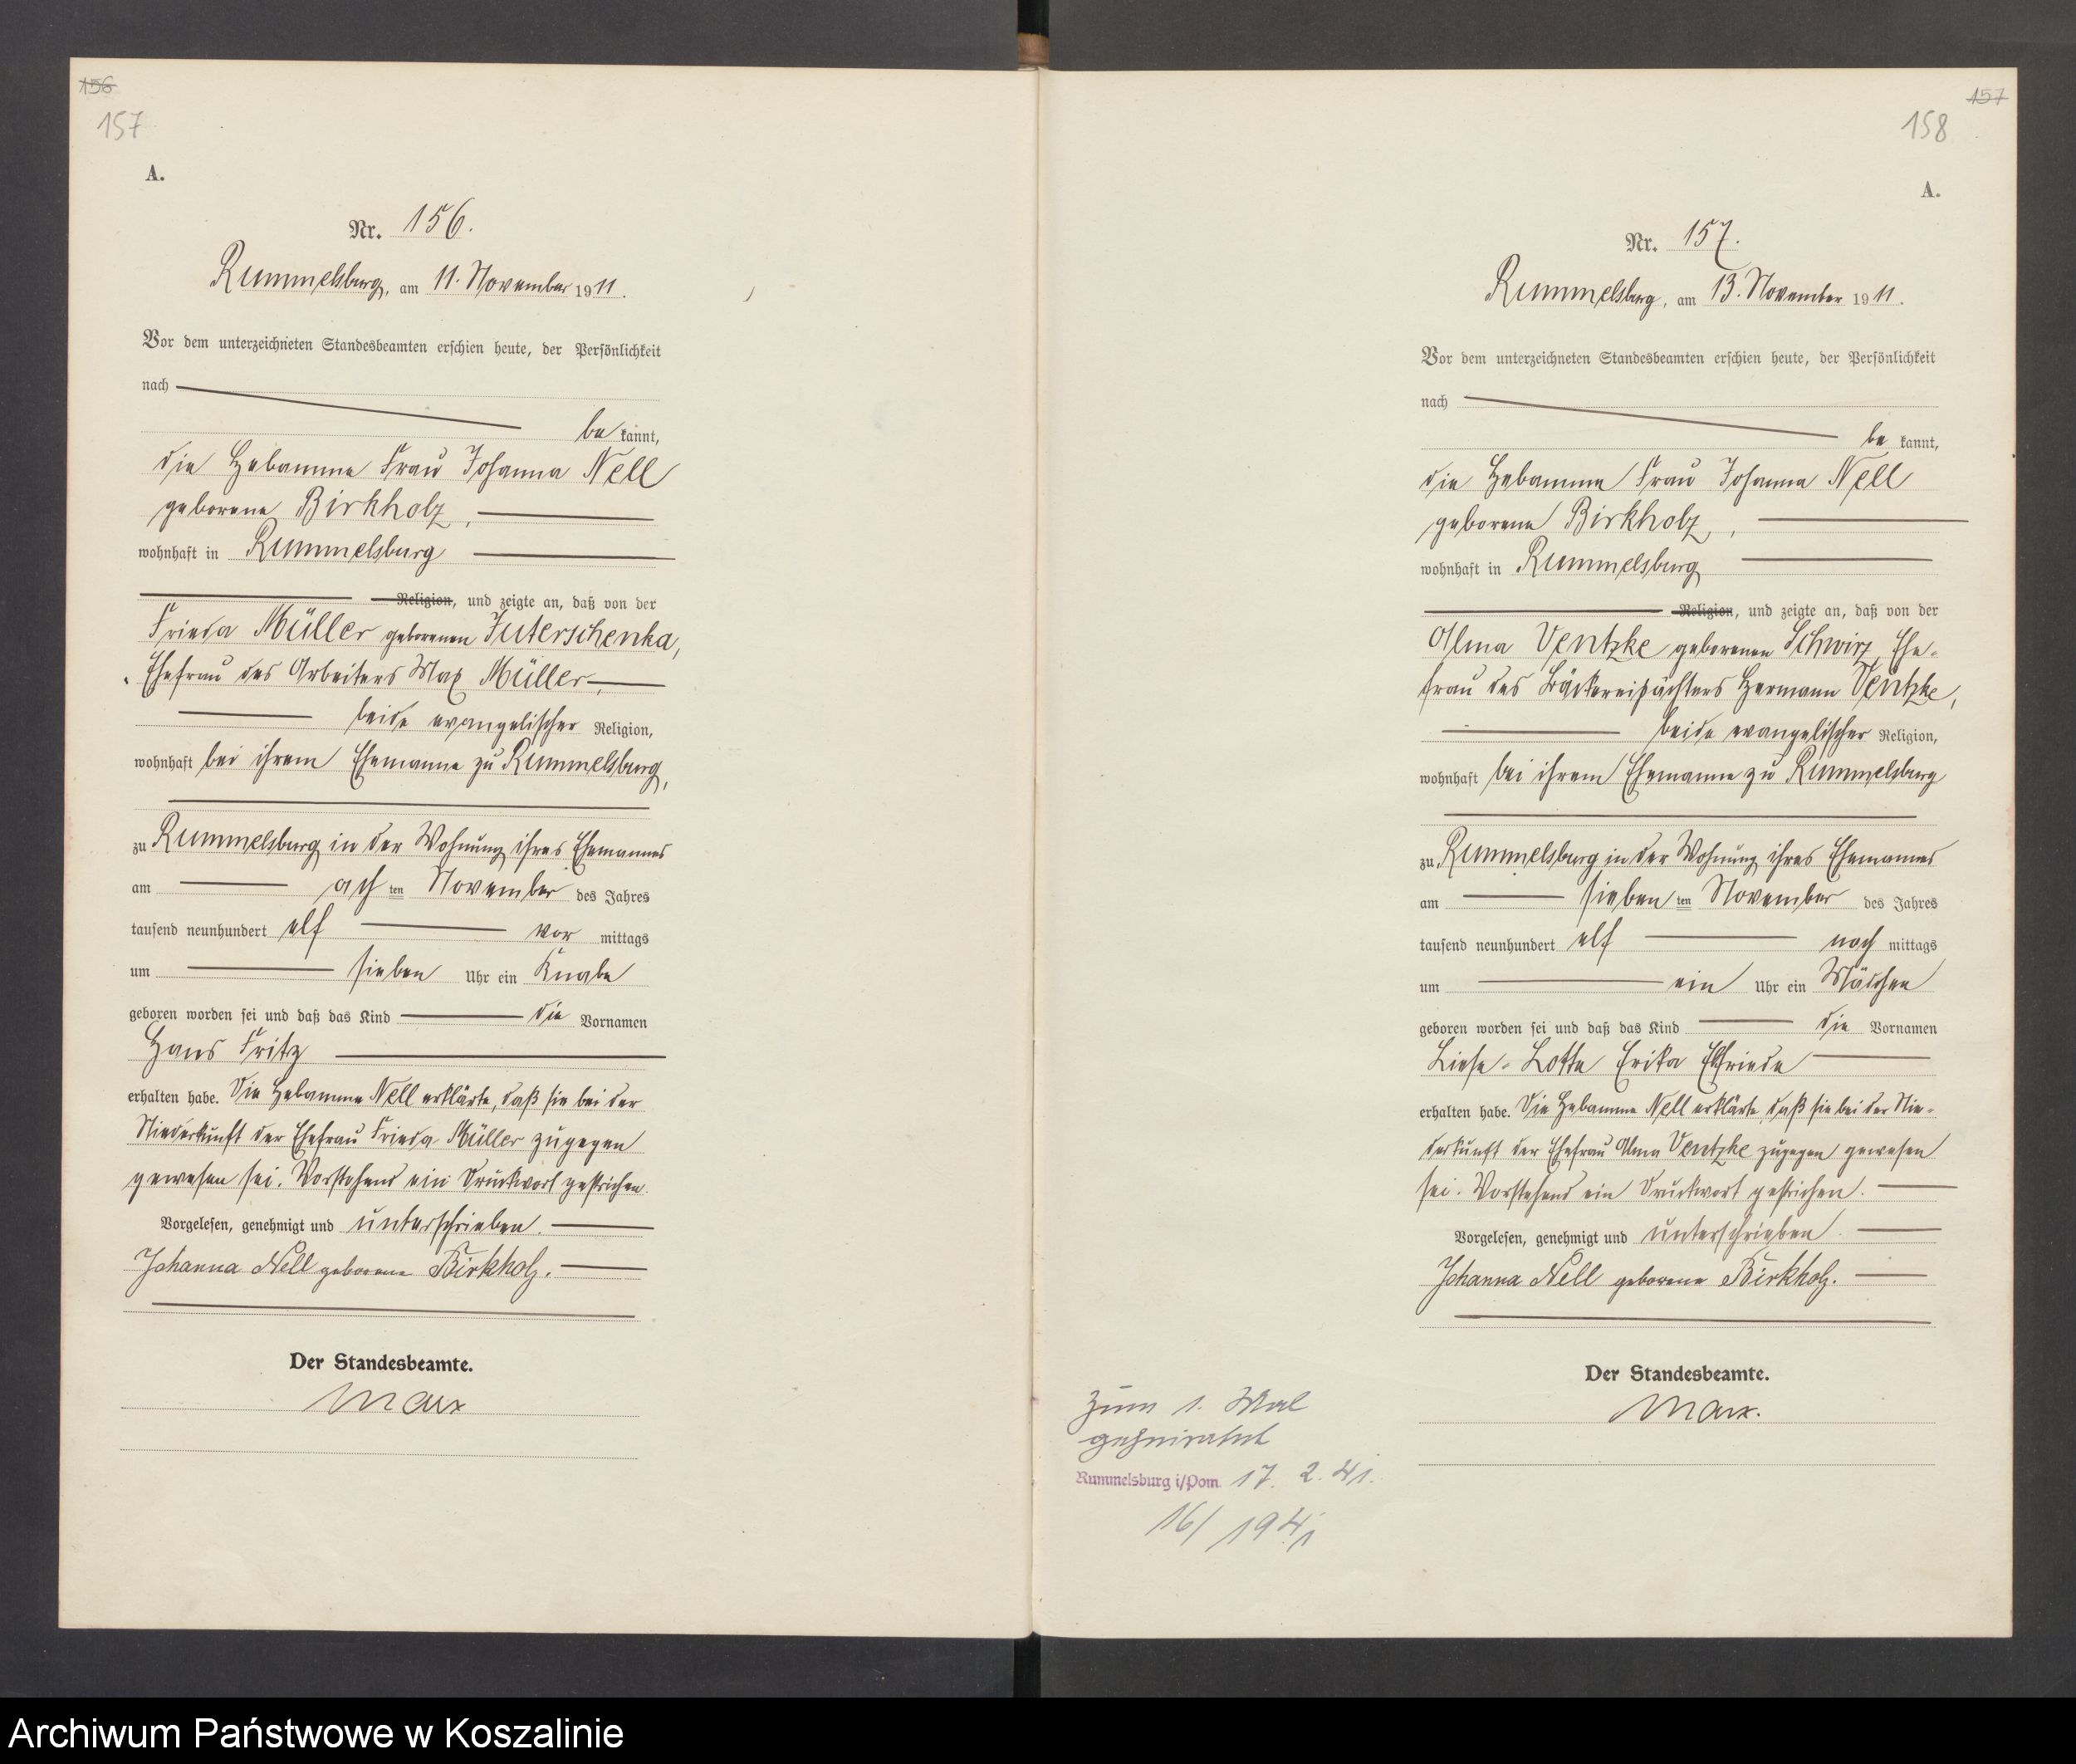 156
157
A.
Nr. 156.
Rummelsburg, am 11. November 1911.
Vor dem unterzeichneten Standesbeamten erschien heute, der Persönlichkeit
nach
be kannt,
die Hebamme Frau Johanna Nell
geborene Birkholz,
wohnhaft in Rummelsburg
Religion, und zeigte an, daß von der
Frieda Müller geborenen Juterschenka,
Ehefrau des Arbeiters Max Müller,
beide evangelischer Religion,
wohnhaft bei ihrem Ehemanne zu Rummelsburg,
zu Rummelsburg in der Wohnung ihres Ehemannes
am acht ten November des Jahres
tausend neunhundert elf vor mittags
um sieben Uhr ein Knabe
geboren worden sei und daß das Kind die Vornamen
Hans Fritz
erhalten habe. Die Hebamme Nell erklärte, daß sie bei der
Niederkunft der Ehefrau Frieda Müller zugegen
gewesen sei. Vorstehend ein Druckwort gestrichen.
Vorgelesen, genehmigt und unterschrieben.
Johanna Nell geborene Birkholz.
Der Standesbeamte.
Marx
157
158
A.
Nr. 157.
Rummelsburg, am 13. November 1911.
Vor dem unterzeichneten Standesbeamten erschien heute, der Persönlichkeit
nach
be kannt,
die Hebamme Frau Johanna Nell
geborene Birkholz,
wohnhaft in Rummelsburg
Religion, und zeigte an, daß von der
Alma Ventzke geborenen Schwirz, Ehe-
frau des Bäckereipächters Hermann Ventzke,
beide evangelischer Religion,
wohnhaft bei ihrem Ehemanne zu Rummelsburg
zu Rummelsburg in der Wohnung ihres Ehemannes
am sieben ten November des Jahres
tausend neunhundert elf nach mittags
um ein Uhr ein Mädchen
geboren worden sei und daß das Kind die Vornamen
Liese-Lotte Erika Elfriede
erhalten habe. Die Hebamme Nell erklärte, daß sie bei der Nie-
derkunft der Ehefrau Alma Ventzke zugegen gewesen
sei. Vorstehend ein Druckwort gestrichen.
Vorgelesen, genehmigt und unterschrieben.
Johanna Nell geborene Birkholz.
Der Standesbeamte.
Marx.
Zum 1. Mal
geheiratet
Rummelsburg i/Pom. 17. 2. 41.
16/1941
Archiwum Państwowe w Koszalinie